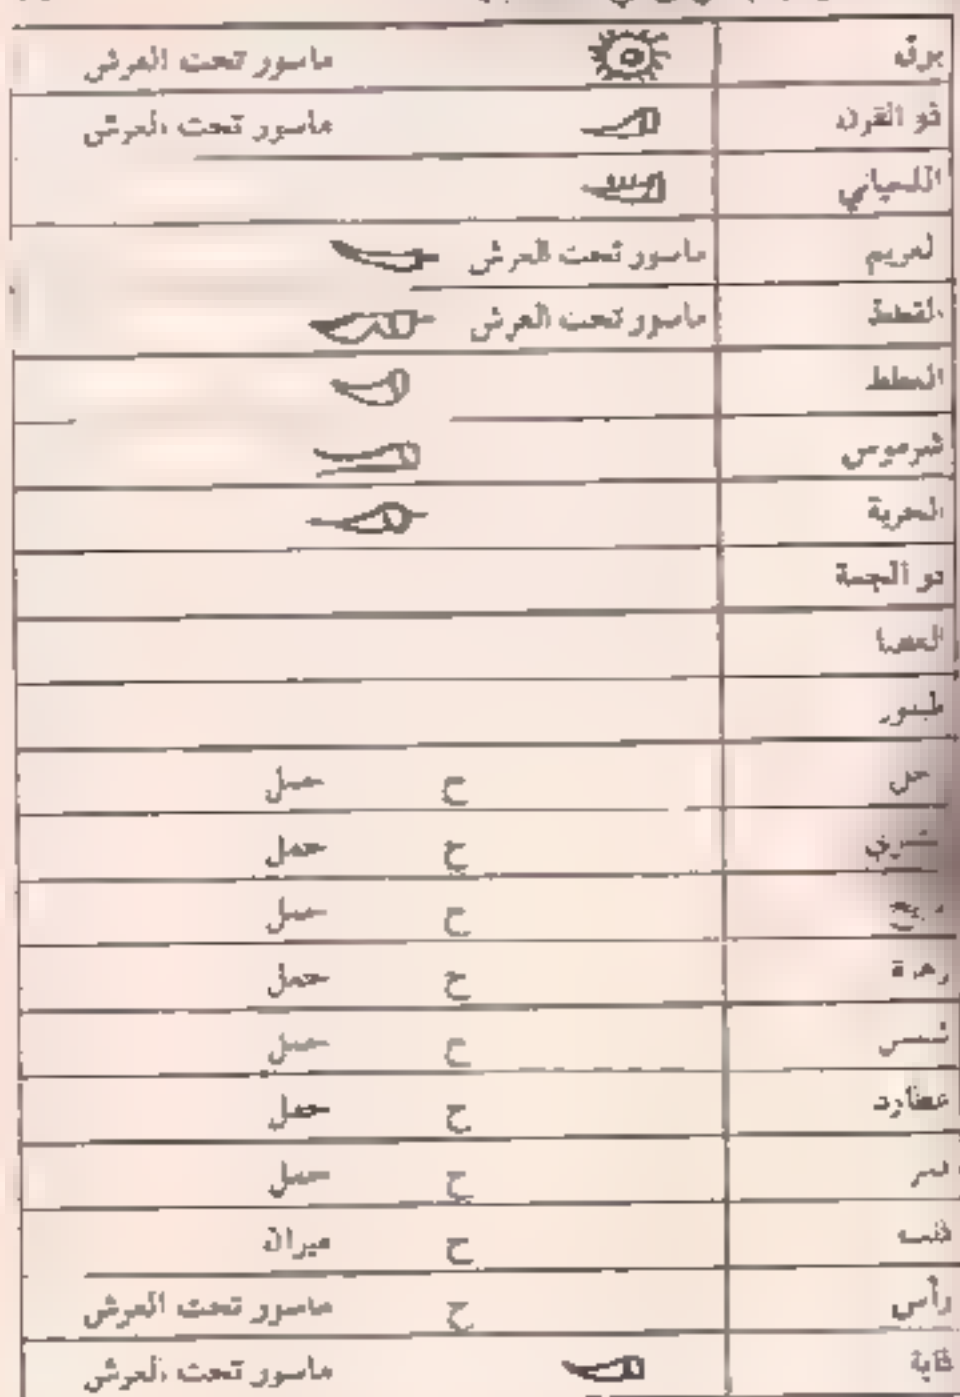 برق ماسور تحت العرش
ذو القرن ماسور تحت العرش
اللحياني
الغريم ماسور تحت العرش
القطط ماسور تحت العرش
الغطط
شرموس
الحربة
ذو الجمة
العصا
طيفور
ح حمل
ح حمل
ح حمل
زهرة ح حمل
شمس ح حمل
عطارد ح حمل
قمر ح حمل
ح ميزان
رأس ح ماسور تحت العرش
ماسور تحت العرش